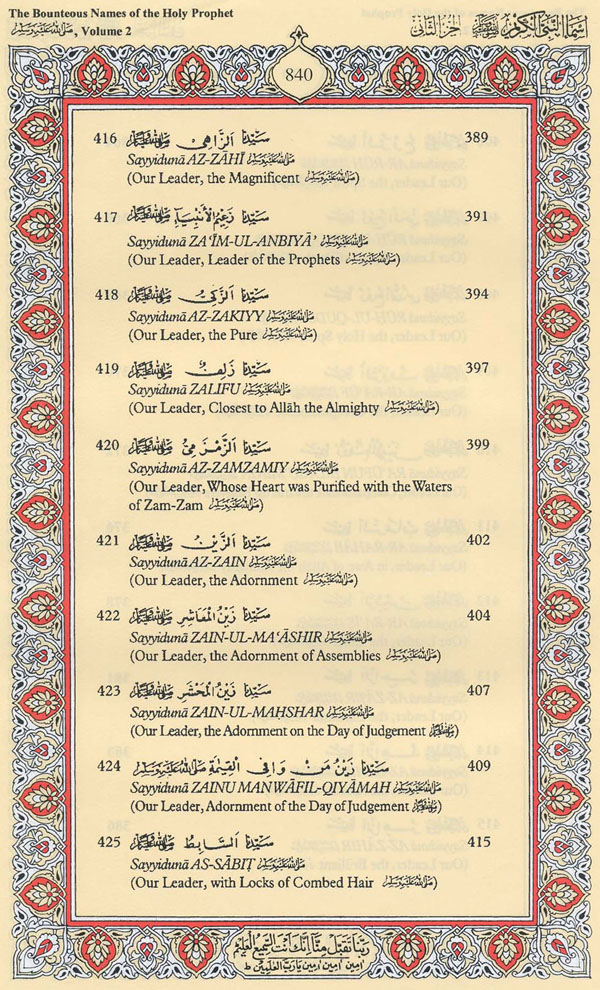 The Bounteous Names of the Holy Prophet
ﷺ, Volume 2
اسماء النبي الكريم ﷺ الجزء الثاني
840
416 سيدنا الزاهي ﷺ 389
Sayyidunā AZ-ZĀHĪ ﷺ
(Our Leader, the Magnificent ﷺ)
417 سيدنا زعيم الأنبياء ﷺ 391
Sayyidunā ZA‘ĪM-UL-ANBIYĀ’ ﷺ
(Our Leader, Leader of the Prophets ﷺ)
418 سيدنا الزكي ﷺ 394
Sayyidunā AZ-ZAKIYY ﷺ
(Our Leader, the Pure ﷺ)
419 سيدنا زلف ﷺ 397
Sayyidunā ZALIFU ﷺ
(Our Leader, Closest to Allāh the Almighty ﷺ)
420 سيدنا الزمزمي ﷺ 399
Sayyidunā AZ-ZAMZAMIY ﷺ
(Our Leader, Whose Heart was Purified with the Waters
of Zam-Zam ﷺ)
421 سيدنا الزين ﷺ 402
Sayyidunā AZ-ZAIN ﷺ
(Our Leader, the Adornment ﷺ)
422 سيدنا زين المعاشر ﷺ 404
Sayyidunā ZAIN-UL-MA‘ĀSHIR ﷺ
(Our Leader, the Adornment of Assemblies ﷺ)
423 سيدنا زين المحشر ﷺ 407
Sayyidunā ZAIN-UL-MAHSHAR ﷺ
(Our Leader, the Adornment on the Day of Judgement ﷺ)
424 سيدنا زين من وافى القيمة ﷺ 409
Sayyidunā ZAINU MAN WĀFIL-QIYĀMAH ﷺ
(Our Leader, Adornment of the Day of Judgement ﷺ)
425 سيدنا السابط ﷺ 415
Sayyidunā AS-SĀBIṬ ﷺ
(Our Leader, with Locks of Combed Hair ﷺ)
ربنا تقبل منا انك انت السميع العليم
امين امين امين يارب العلمين ط